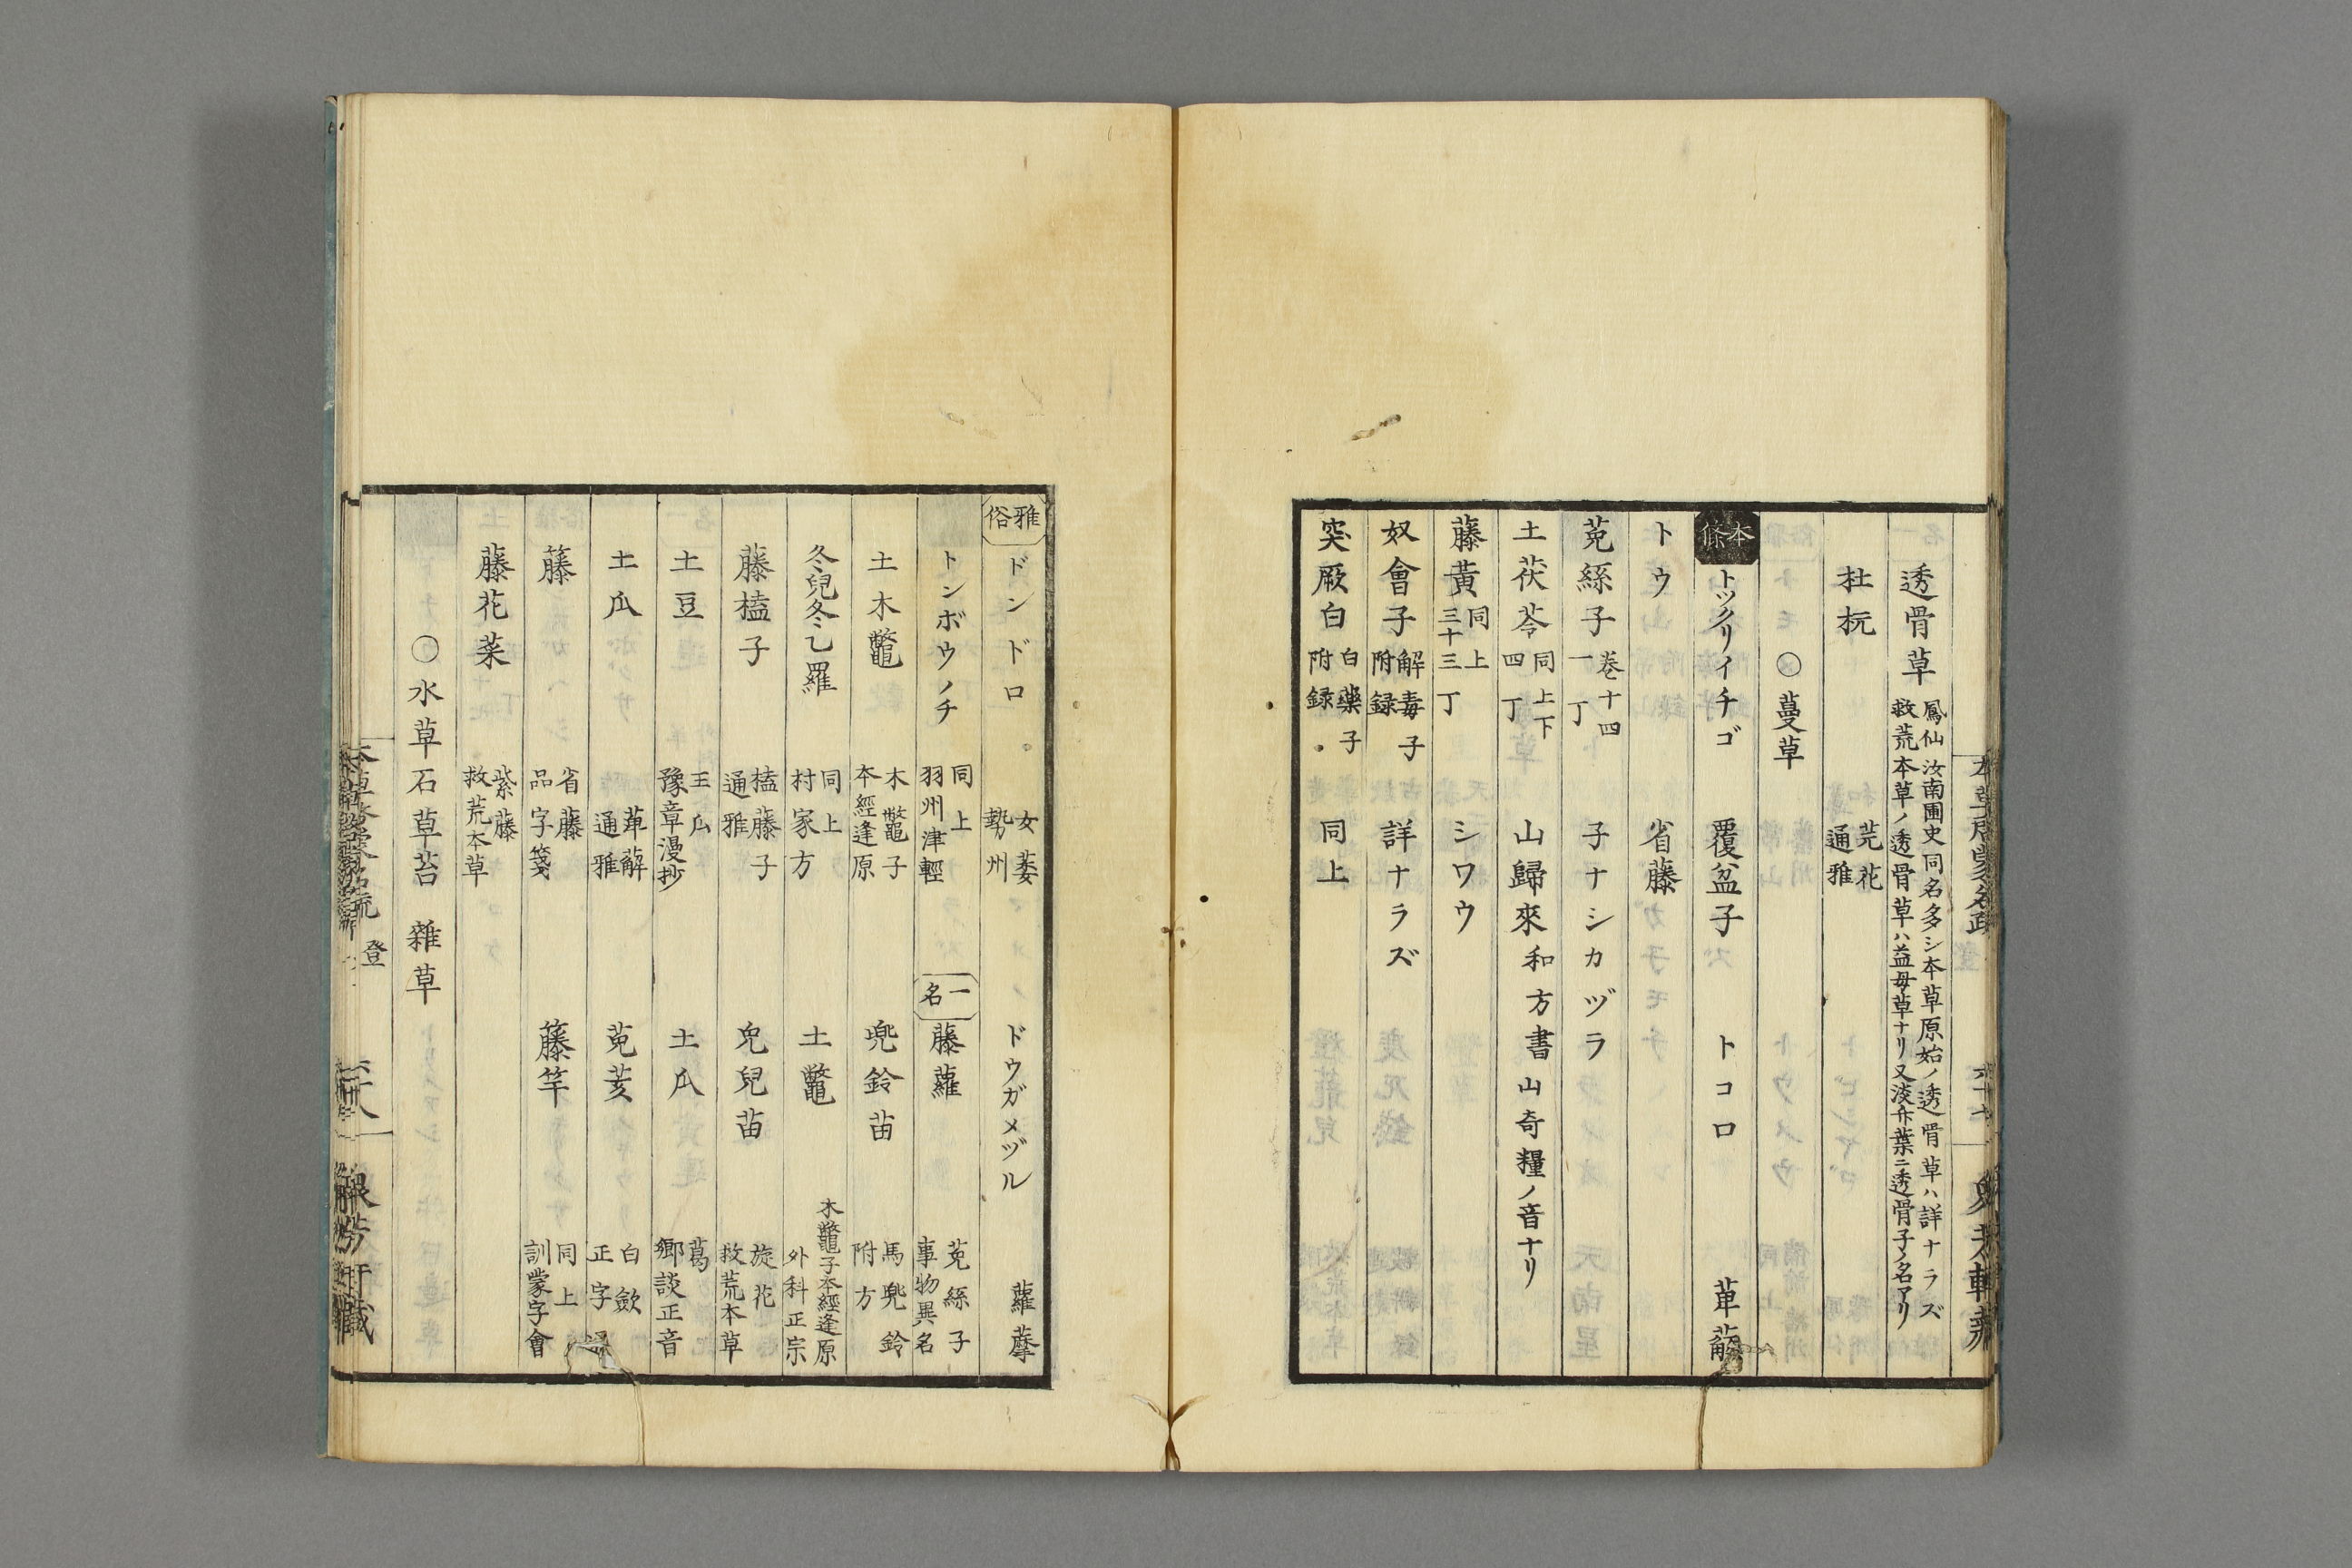 透骨草 鳳仙 汝南圃史 同名多シ本草原始ノ透骨草ハ詳ナラズ
救荒本草ノ透骨草ハ益母草ナリ又淡竹葉ニ透骨子ノ名アリ
杜杬 芫花 通雅
○蔓草
本條 トックリイチゴ 覆盆子 トコロ 萆薢
トウ 省藤
菟絲子 巻十四 一丁 子ナシカヅラ
土茯苓 同上下 四丁 山歸來 和方書山奇糧ノ音ナリ
藤黃 同上 三十三丁 シワウ
奴會子 解毒子 附録 詳ナラズ
突厥白 白藥子 附録 同上
雅俗 ドンドロ 女萎 勢州 ドウガメヅル 蘿藦
トンボウノチ 同上 羽州津輕 一名 藤蘿 菟絲子 事物異名
土木鼈 木鼈子 本經逢原 兜鈴苗 馬兜鈴 附方
冬兒冬乙羅 同上 村家方 土鼈 木鼈子本經逢原 外科正宗
藤榼子 榼藤子 通雅 兎兒苗 旋花 救荒本草
土豆 王瓜 豫章漫抄 土瓜 葛 郷談正音
土瓜 萆薢 通雅 菟荄 白歛 正字
籐 省藤 品字箋 籐竿 同上 訓蒙字會
藤花菜 紫藤 救荒本草
○水草石草苔 雜草
登